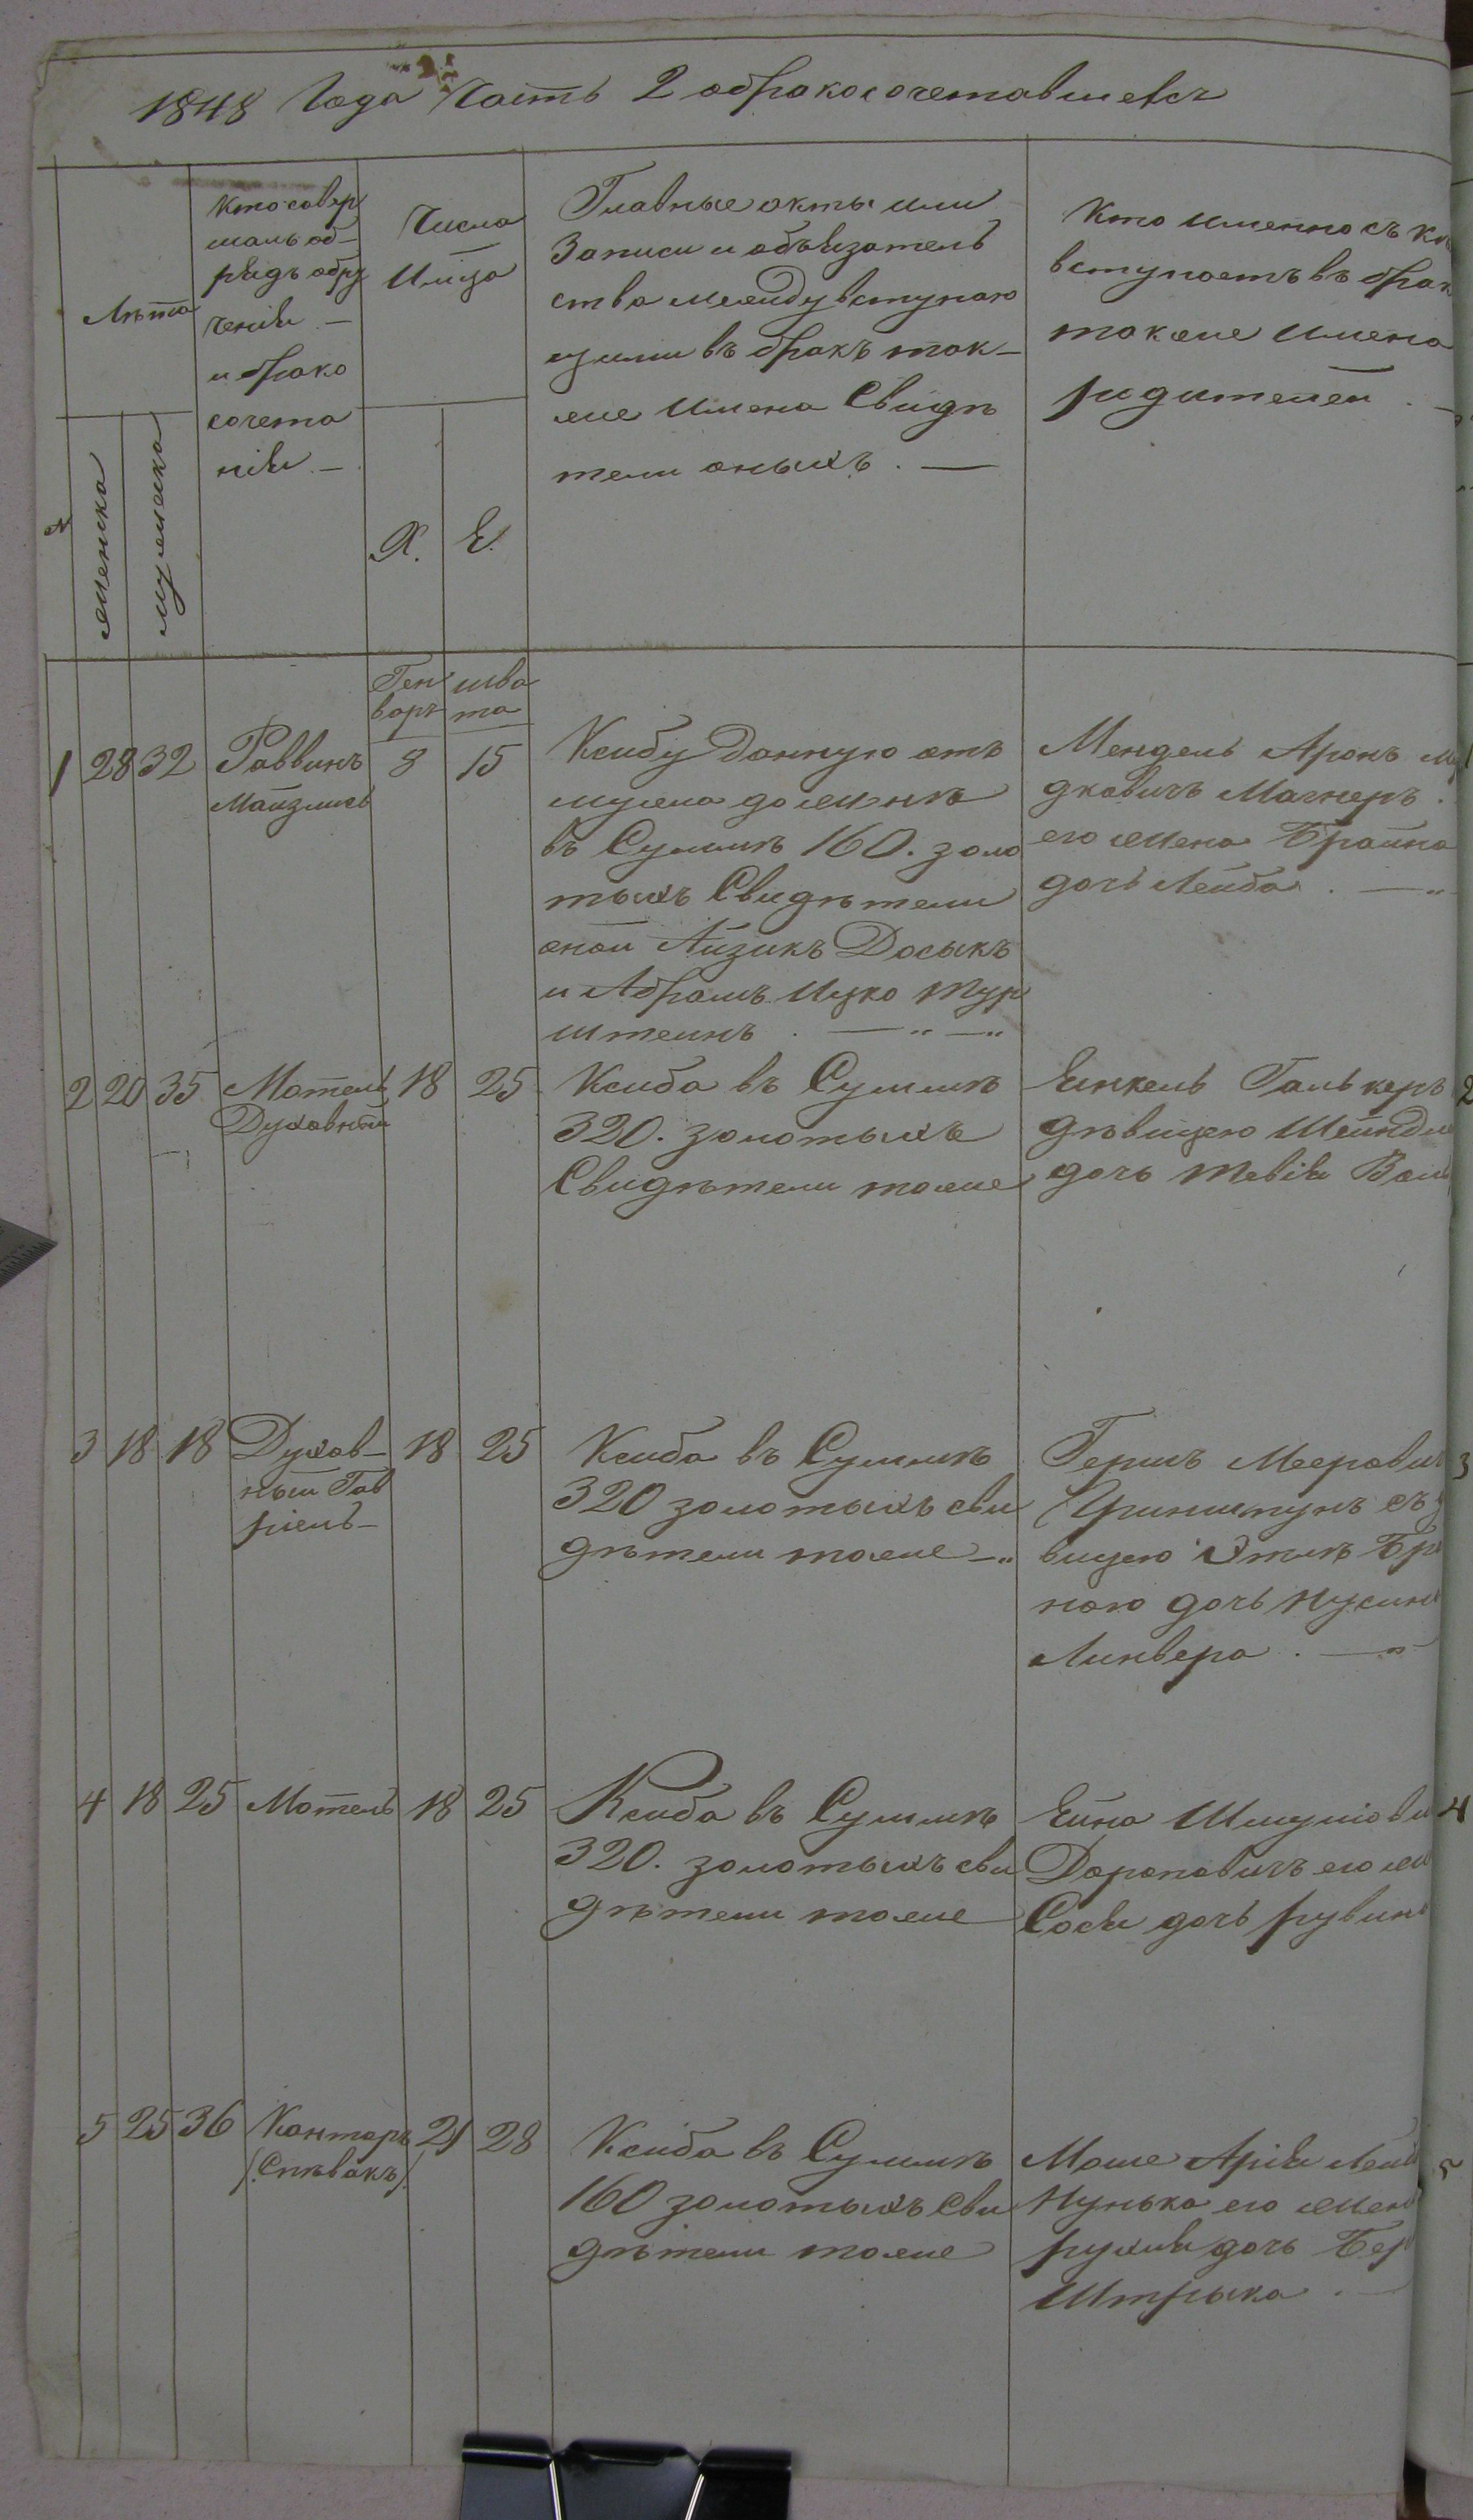 1848 Года Часть 2 обракосочетавшехся
№
Лѣта
женска
мужеска
Кто совер
шалъ об-
рядъ обру
ченія —
и брако
сочета
нія —
Числа
Иміца
Х.
Е.
Главные акты или
Записи и объязатель
ства между вступаю
щими въ бракъ так-
же имена Свидѣ
тели оныхъ . —
Кто именно съ кѣ
вступаетъ въ брак
также имена
родителей . —
Ген шва
варъ та
1 28 32 Раввинъ 8 15
Майзлисъ
Ксибу данную отъ
мужа до женѣ
въ Суммѣ 160. золо
тыхъ Свидѣтели
оной Айзикъ Досыкъ
и Абрамъ Ицко Тур
штеинъ . — „ — „
Мендель Аронъ
дковичъ Магнеръ .
его жена Брайна
дочь Лейба . — „
2 20 35 Мотель 18 25
Духовный
Ксиба въ Суммѣ
320. золотыхъ
Свидѣтели тоже
Еинкель Гальперъ
дѣвицею Шейндле
дочь Тевія Вол
3 18 18 Духов- 18 25
ный Гав
ріель -
Ксиба въ Суммѣ
320 золотыхъ сви
дѣтели тоже - „
Гершъ Мееровичъ
Гринштунъ съ д
вицею Этлѣ Бра
ною дочь Нусина
Линвера . — „
4 18 25 Мотель 18 25
Ксиба въ Суммѣ
320. золотыхъ сви
дѣтели тоже
Ейна Шмуліови
Дорановичъ его же
Сося дочь рувинъ
5 25 36 Канторъ 21 28
(Спѣвакъ)
Ксиба въ Суммѣ
160 золотыхъ Сви
дѣтели тоже
Моше Арія Лейб
Нунька его жена
рухля дочь Бер
Штрыка . —
1
2
3
4
5